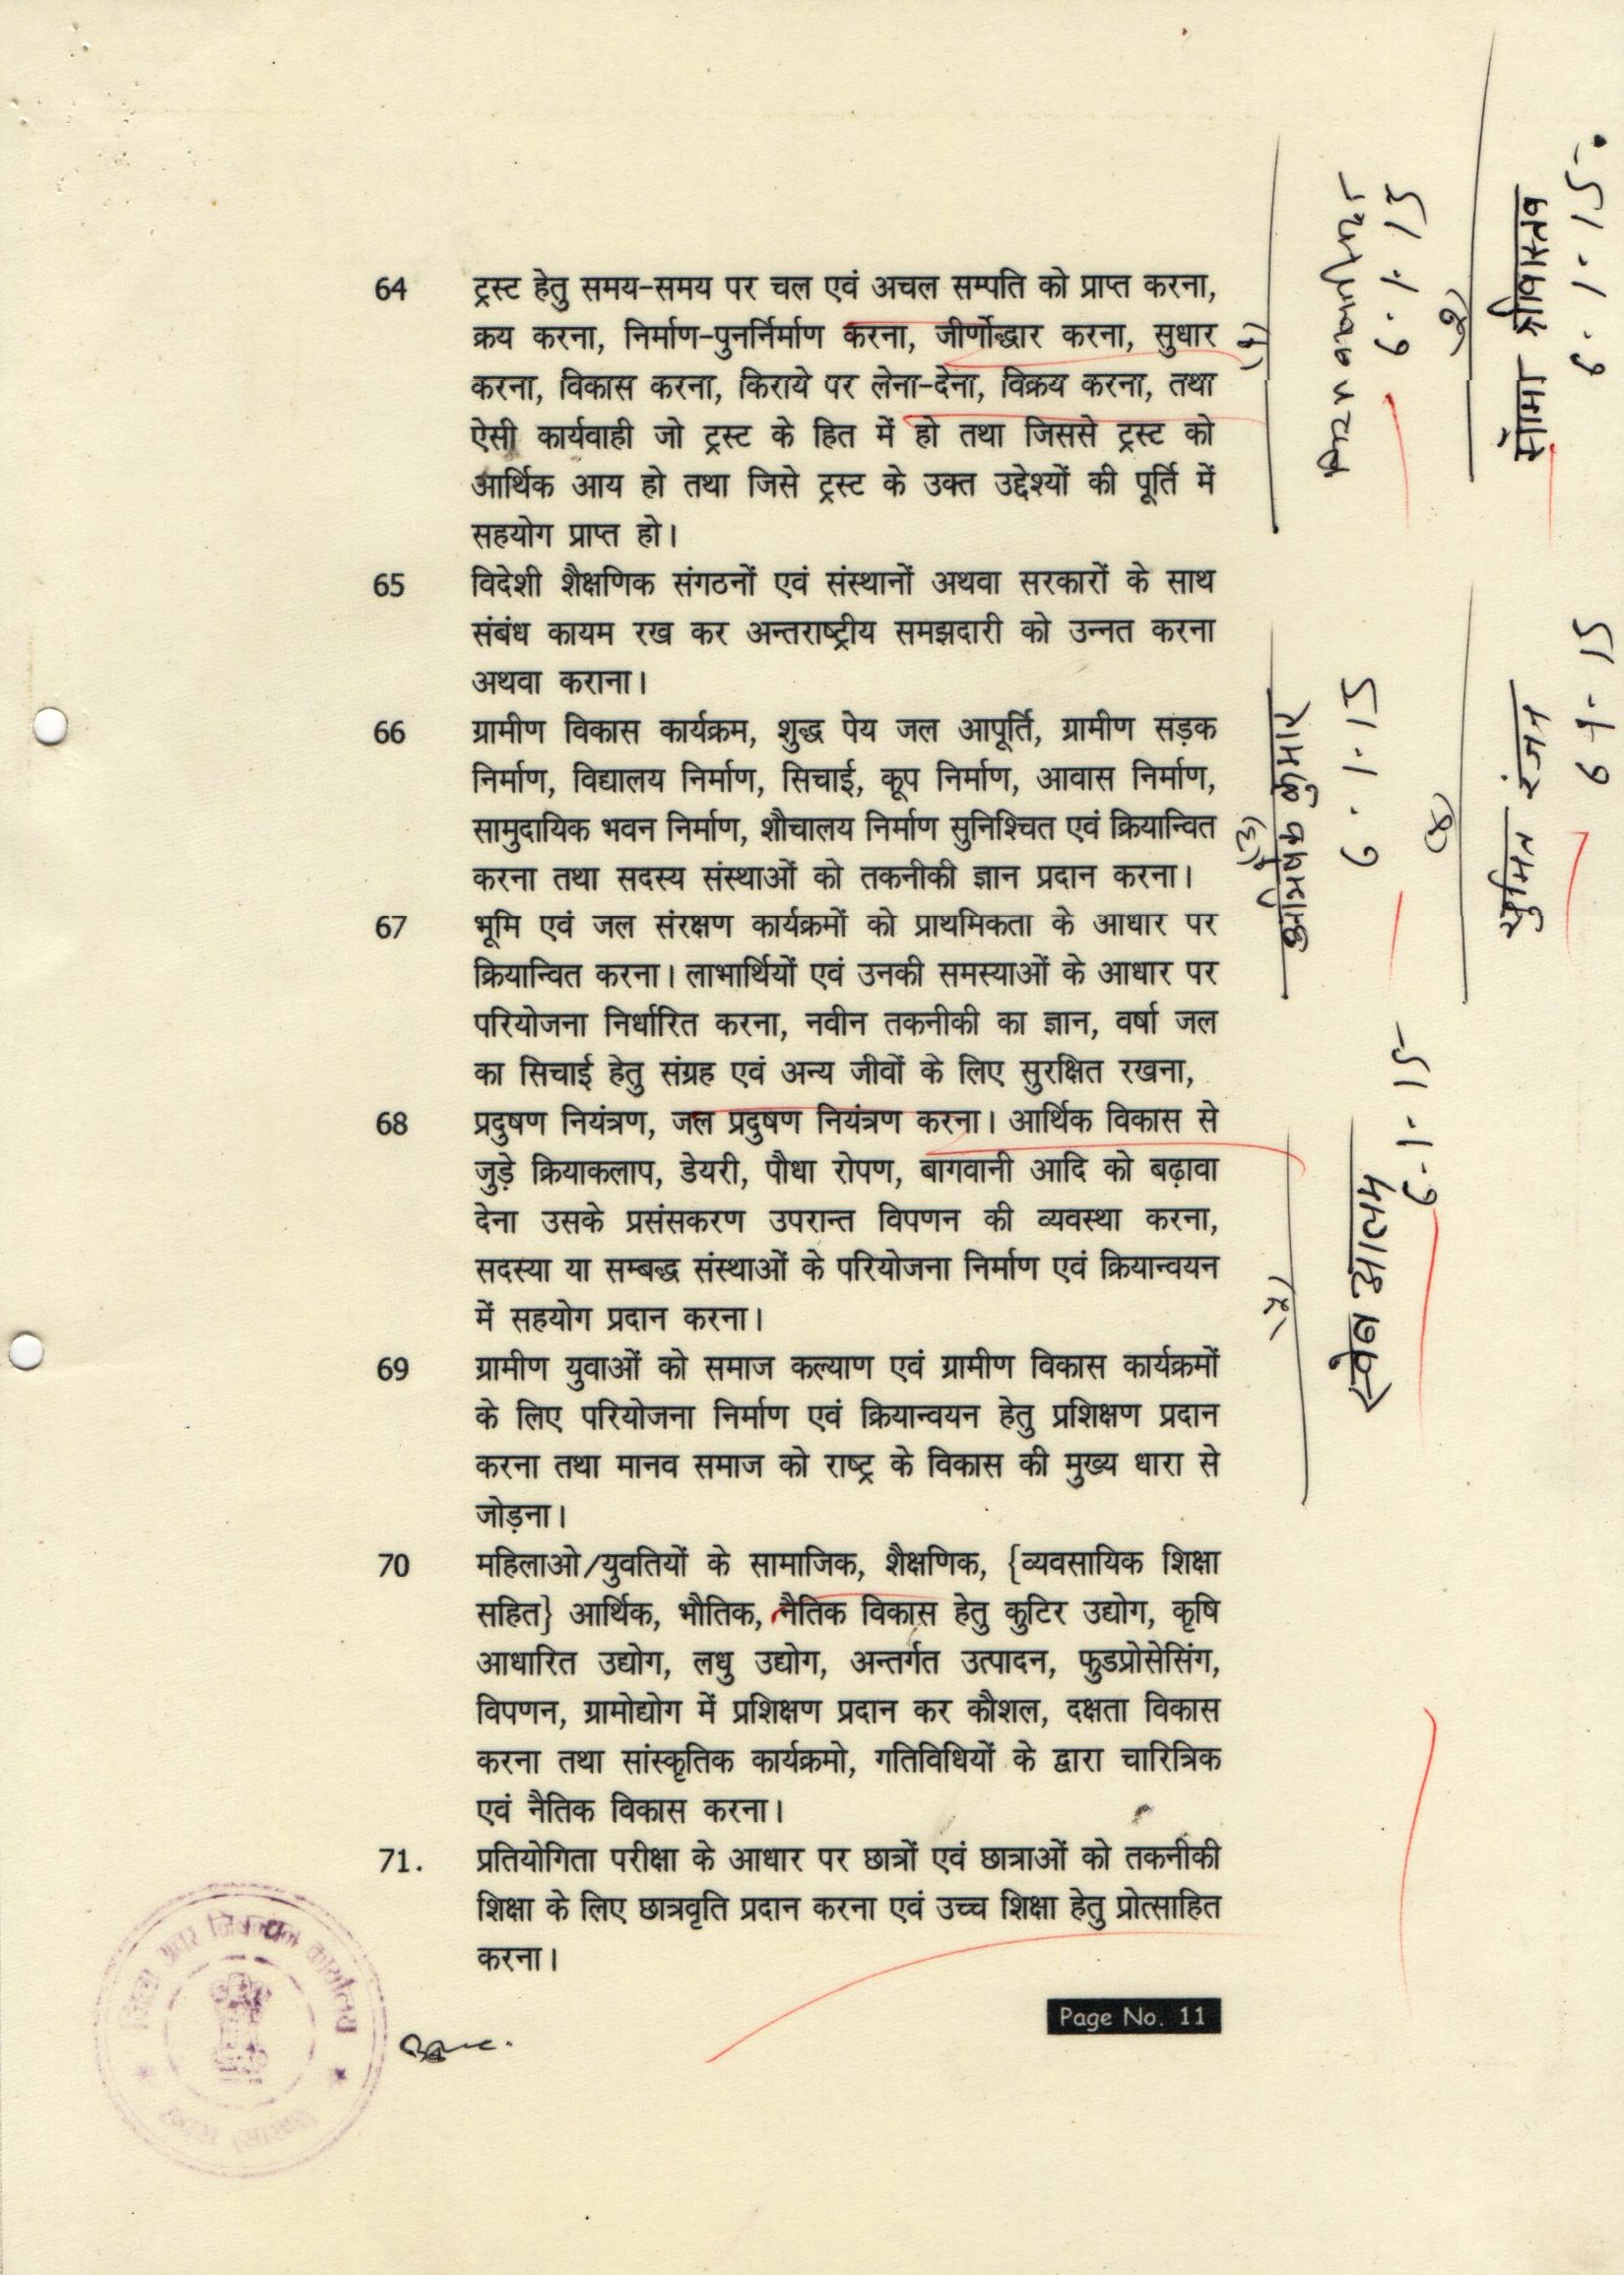 64 ट्रस्ट हेतु समय-समय पर चल एवं अचल सम्पति को प्राप्त करना,
क्रय करना, निर्माण-पुनर्निर्माण करना, जीर्णोद्धार करना, सुधार
करना, विकास करना, किराये पर लेना-देना, विक्रय करना, तथा
ऐसी कार्यवाही जो ट्रस्ट के हित में हो तथा जिससे ट्रस्ट को
आर्थिक आय हो तथा जिसे ट्रस्ट के उक्त उद्देश्यों की पूर्ति में
सहयोग प्राप्त हो।
65 विदेशी शैक्षणिक संगठनों एवं संस्थानों अथवा सरकारों के साथ
संबंध कायम रख कर अन्तराष्ट्रीय समझदारी को उन्नत करना
अथवा कराना।
66 ग्रामीण विकास कार्यक्रम, शुद्ध पेय जल आपूर्ति, ग्रामीण सड़क
निर्माण, विद्यालय निर्माण, सिचाई, कूप निर्माण, आवास निर्माण,
सामुदायिक भवन निर्माण, शौचालय निर्माण सुनिश्चित एवं क्रियान्वित
करना तथा सदस्य संस्थाओं को तकनीकी ज्ञान प्रदान करना।
67 भूमि एवं जल संरक्षण कार्यक्रमों को प्राथमिकता के आधार पर
क्रियान्वित करना। लाभार्थियों एवं उनकी समस्याओं के आधार पर
परियोजना निर्धारित करना, नवीन तकनीकी का ज्ञान, वर्षा जल
का सिचाई हेतु संग्रह एवं अन्य जीवों के लिए सुरक्षित रखना,
68 प्रदुषण नियंत्रण, जल प्रदुषण नियंत्रण करना। आर्थिक विकास से
जुड़े क्रियाकलाप, डेयरी, पौधा रोपण, बागवानी आदि को बढ़ावा
देना उसके प्रसंसकरण उपरान्त विपणन की व्यवस्था करना,
सदस्या या सम्बद्ध संस्थाओं के परियोजना निर्माण एवं क्रियान्वयन
में सहयोग प्रदान करना।
69 ग्रामीण युवाओं को समाज कल्याण एवं ग्रामीण विकास कार्यक्रमों
के लिए परियोजना निर्माण एवं क्रियान्वयन हेतु प्रशिक्षण प्रदान
करना तथा मानव समाज को राष्ट्र के विकास की मुख्य धारा से
जोड़ना।
70 महिलाओ/युवतियों के सामाजिक, शैक्षणिक, {व्यवसायिक शिक्षा
सहित} आर्थिक, भौतिक, नैतिक विकास हेतु कुटिर उद्योग, कृषि
आधारित उद्योग, लधु उद्योग, अन्तर्गत उत्पादन, फुडप्रोसेसिंग,
विपणन, ग्रामोद्योग में प्रशिक्षण प्रदान कर कौशल, दक्षता विकास
करना तथा सांस्कृतिक कार्यक्रमो, गतिविधियों के द्वारा चारित्रिक
एवं नैतिक विकास करना।
71. प्रतियोगिता परीक्षा के आधार पर छात्रों एवं छात्राओं को तकनीकी
शिक्षा के लिए छात्रवृति प्रदान करना एवं उच्च शिक्षा हेतु प्रोत्साहित
करना।
Page No. 11
6.1.15
सोमा श्रीवास्तव
6.1.15
अभिषेक कुमार
6.1.15
सुमित रंजन
6.1.15
आलम
6.1.15